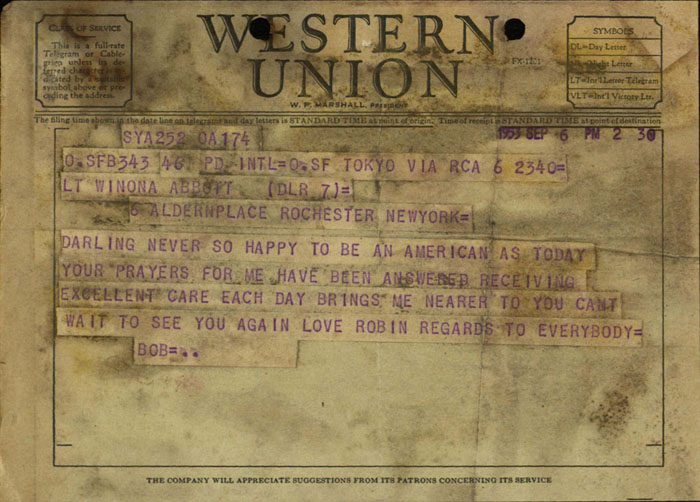 CLASS OF SERVICE
This is a full-rate
Telegram or Cable-
gram unless its de-
ferred character is in-
dicated by a suitable
symbol above or pre-
ceding the address.
WESTERN
UNION
W. P. MARSHALL, PRESIDENT
SYMBOLS
DL=Day Letter
Night Letter
LT=Int'l Letter Telegram
VLT=Int'l Victory Ltr.
The filing time shown in the date line on telegrams and day letters is STANDARD TIME at point of origin. Time of receipt is STANDARD TIME at point of destination
1953 SEP 6 PM 2 30
SYA252 OA174
O.SFB343 46 PD INTL=O.SF TOKYO VIA RCA 6 2340=
LT WINONA ABBOTT (DLR 7)=
6 ALDERNPLACE ROCHESTER NEWYORK=
DARLING NEVER SO HAPPY TO BE AN AMERICAN AS TODAY
YOUR PRAYERS FOR ME HAVE BEEN ANSWERED RECEIVING
EXCELLENT CARE EACH DAY BRINGS ME NEARER TO YOU CANT
WAIT TO SEE YOU AGAIN LOVE ROBIN REGARDS TO EVERYBODY=
BOB=..
THE COMPANY WILL APPRECIATE SUGGESTIONS FROM ITS PATRONS CONCERNING ITS SERVICE